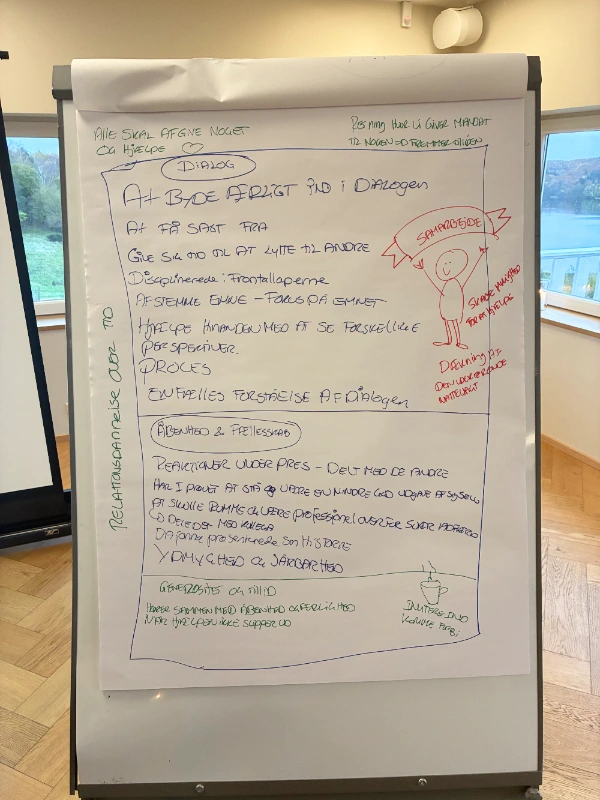 ALLE SKAL AFGIVE NOGET
OG HJÆLPE
HVOR VI GIVER MANDAT
TIL NOGEN FREMMER
DIALOG
AT BYDE ÆRLIGT IND i DIALOGEN
AT FÅ SAGT FRA
GIVE SIG TID TIL AT LYTTE TIL ANDRE
Disciplinerede i Frontallapperne
AFSTEMME EMNE - FOKUS PÅ EMNET
HJÆLPE HINANDEN MED AT SE FORSKELLIGE
PERSPEKTIVER.
PROCES
EN FÆLLES FORSTÅELSE AF DIALOGEN
SAMARBEJDE
SKABE MULIGHED
FOR AT HJÆLPE
DÆKNING AF
DEN UDEKØRENDE
NATTEVAGT
RELATIONSDANNELSE OVER TID
ÅBENHED & FÆLLESSKAB
REAKTIONER UNDER PRES - DELT MED DE ANDRE
HAR I PRØVET AT STÅ OG VÆRE EN MINDRE GOD UDGAVE AF SIG SELV
AT SKULLE RUMME OG VÆRE PROFESSIONEL OVERFOR
DELE DET MED KOLLEGA
Da Janne præsenterede sin HISTORIE
YDMYGHED OG SÅRBARHED
GENERØSITET OG TILLID
HØRER SAMMEN MED ÅBENHED OG ÆRLIGHED
NÅR HJÆLPEN IKKE SLIPPER UD
INVITERE IND
KOMME FORBI